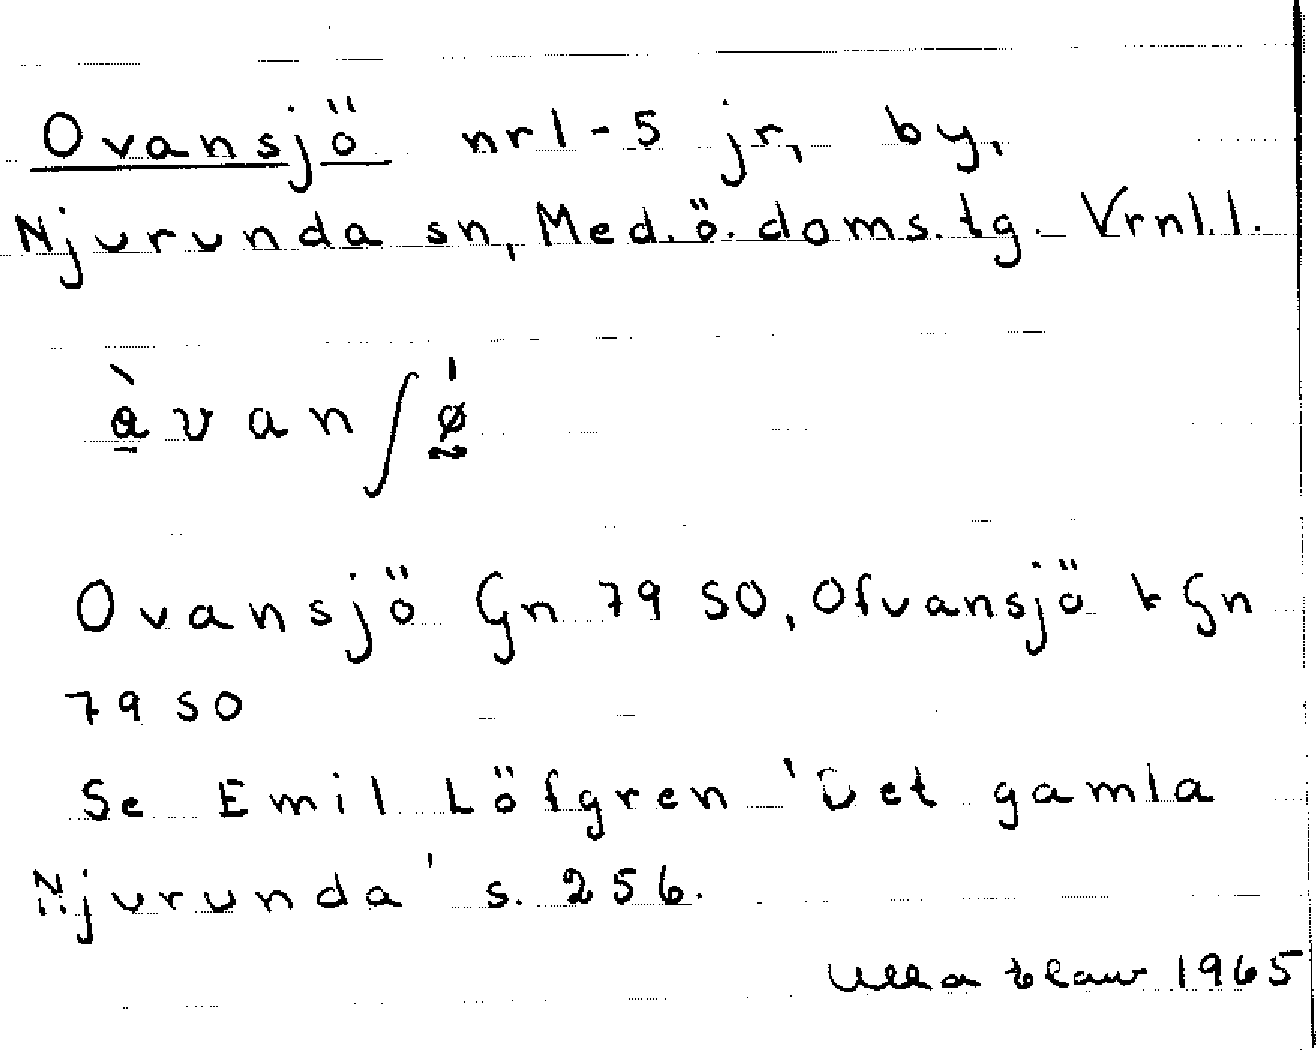 Ovansjö nr1-5 jr, by,
Njurunda sn, Med. ö. doms. tg. Vrnl.l.
Ovansjö Gn 79 SO, Ofvansjö t Gn
79 SO
Se Emil Löfgren 'Det gamla
Njurunda' s. 256.
Ulla 1965